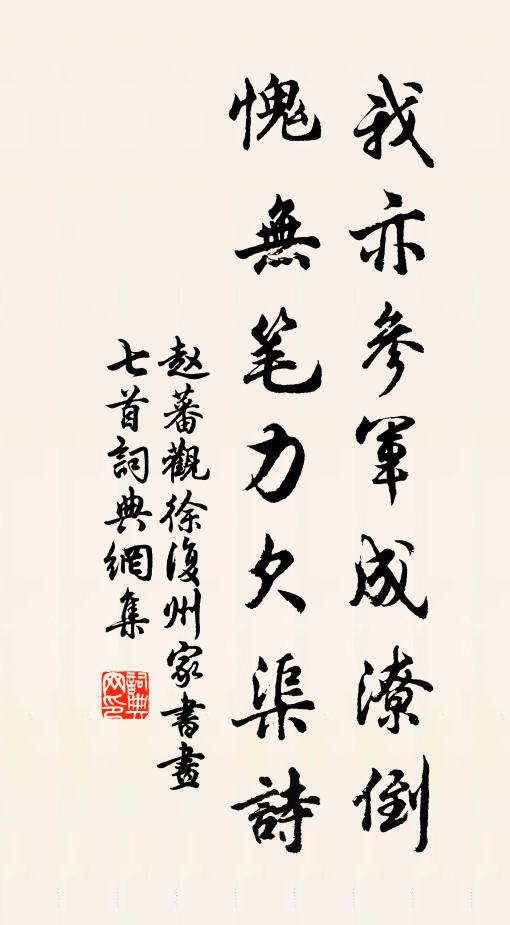 我亦參軍成潦倒
愧無笔力欠渠詩
赵蕃觀徐復州家書畫
七首詞典網集
詞典网印